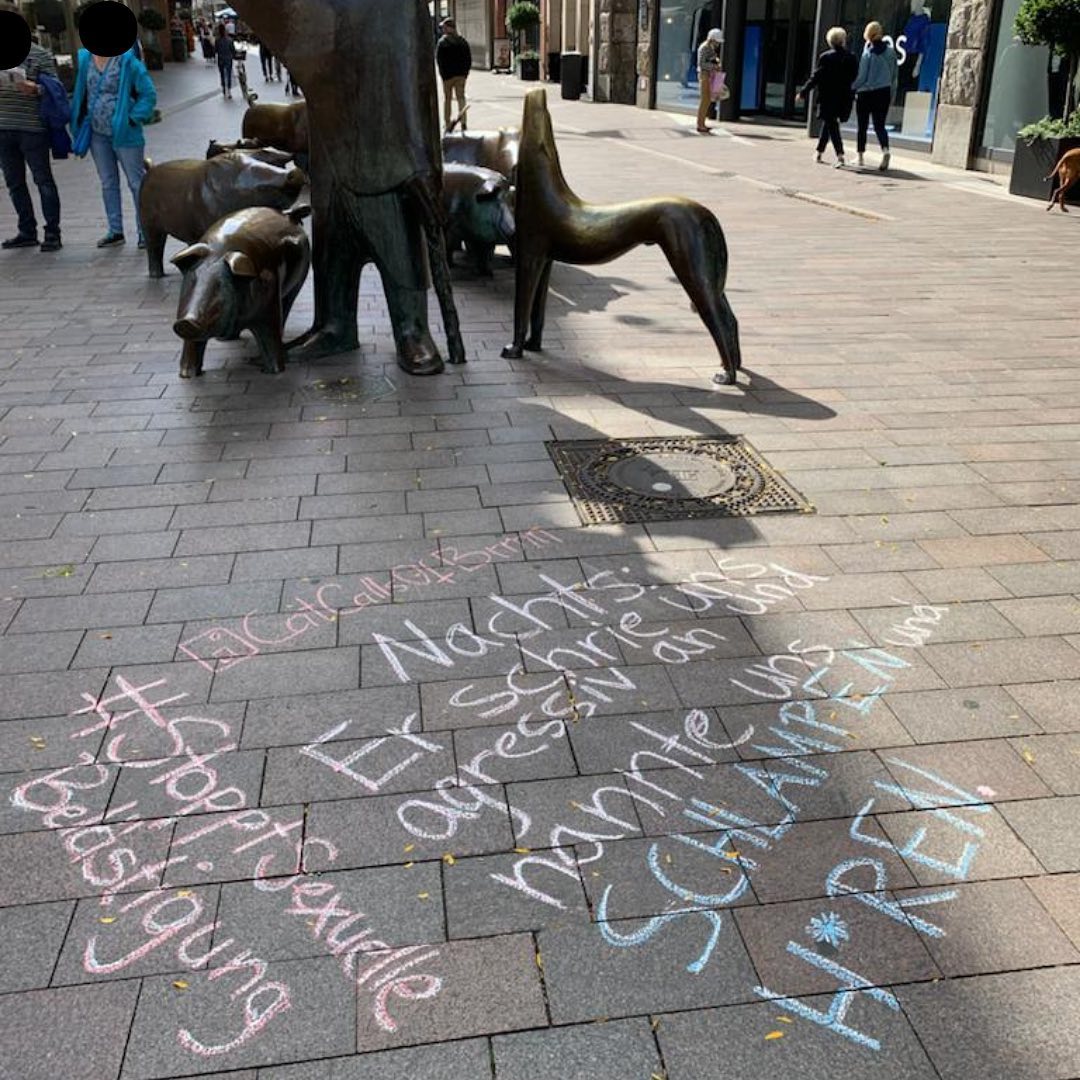 CatCallsOfBrmn
Nachts:
Er schrie uns
agressiv an und
nannte uns
SCHLAMPEN und
H*REN.
#StopptSexuelle
Belästigung